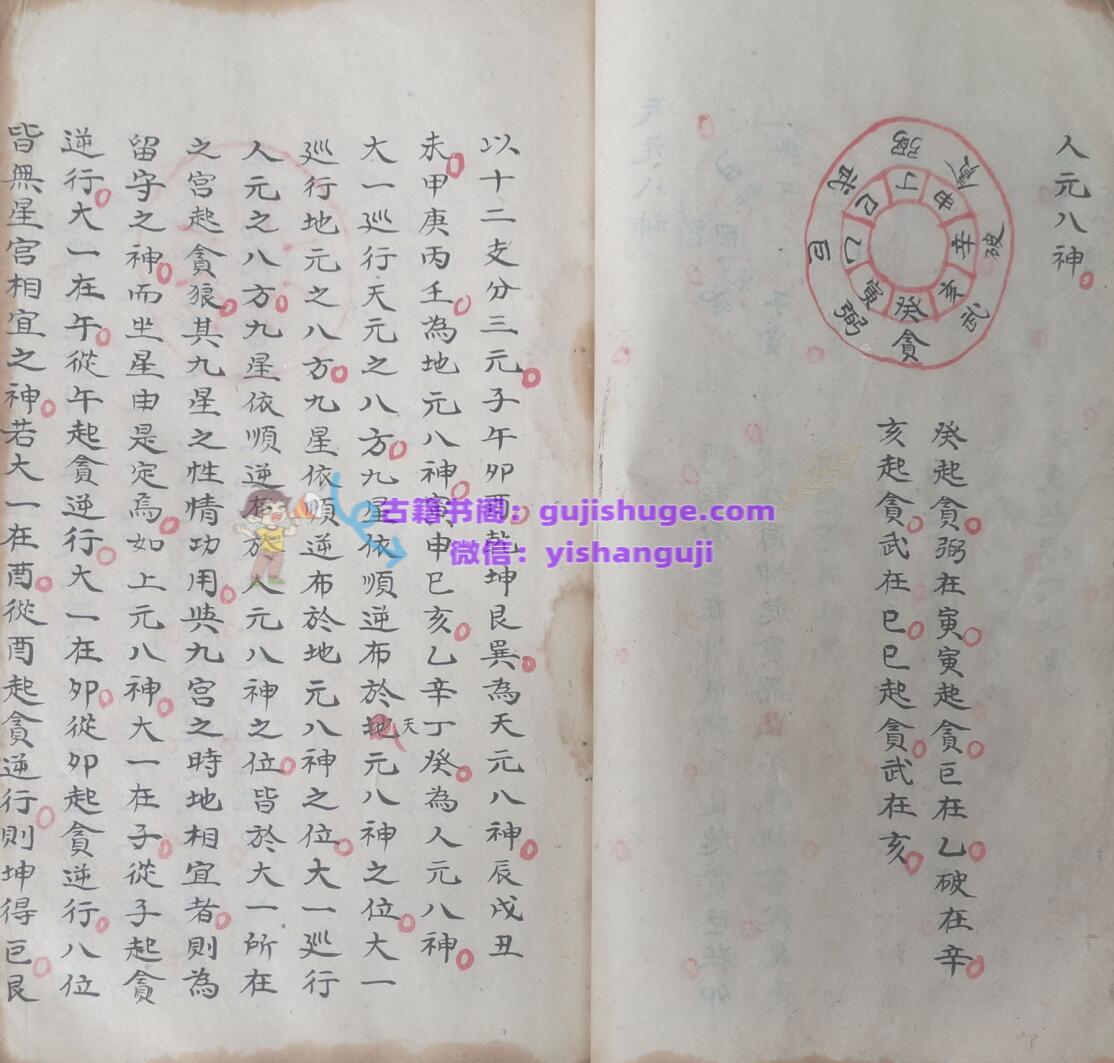 人元八神
弼
貪
破
武
貪
弼
巨
武
丁
申
辛
亥
癸
寅
乙
巳
癸起貪弼在寅寅起貪巨在乙破在辛
亥起貪武在巳巳起貪武在亥
以十二支分三元子午卯酉乾坤艮巽為天元八神辰戌丑
未甲庚丙壬為地元八神寅申巳亥乙辛丁癸為人元八神
大一巡行天元之八方九星依順逆布於地元八神之位大一
天
巡行地元之八方九星依順逆布於地元八神之位大一巡行
人元之八方九星依順逆布於人元八神之位皆於大一所在
之宮起貪狼其九星之性情功用與九宮之時地相宜者則為
留守之神而坐星由是定焉如上元八神大一在子從子起貪
逆行大一在午從午起貪逆行大一在卯從卯起貪逆行八位
皆無星宮相宜之神若大一在酉從酉起貪逆行則坤得巨艮
古籍书阁：gujishuge.com
微信：yishanguji